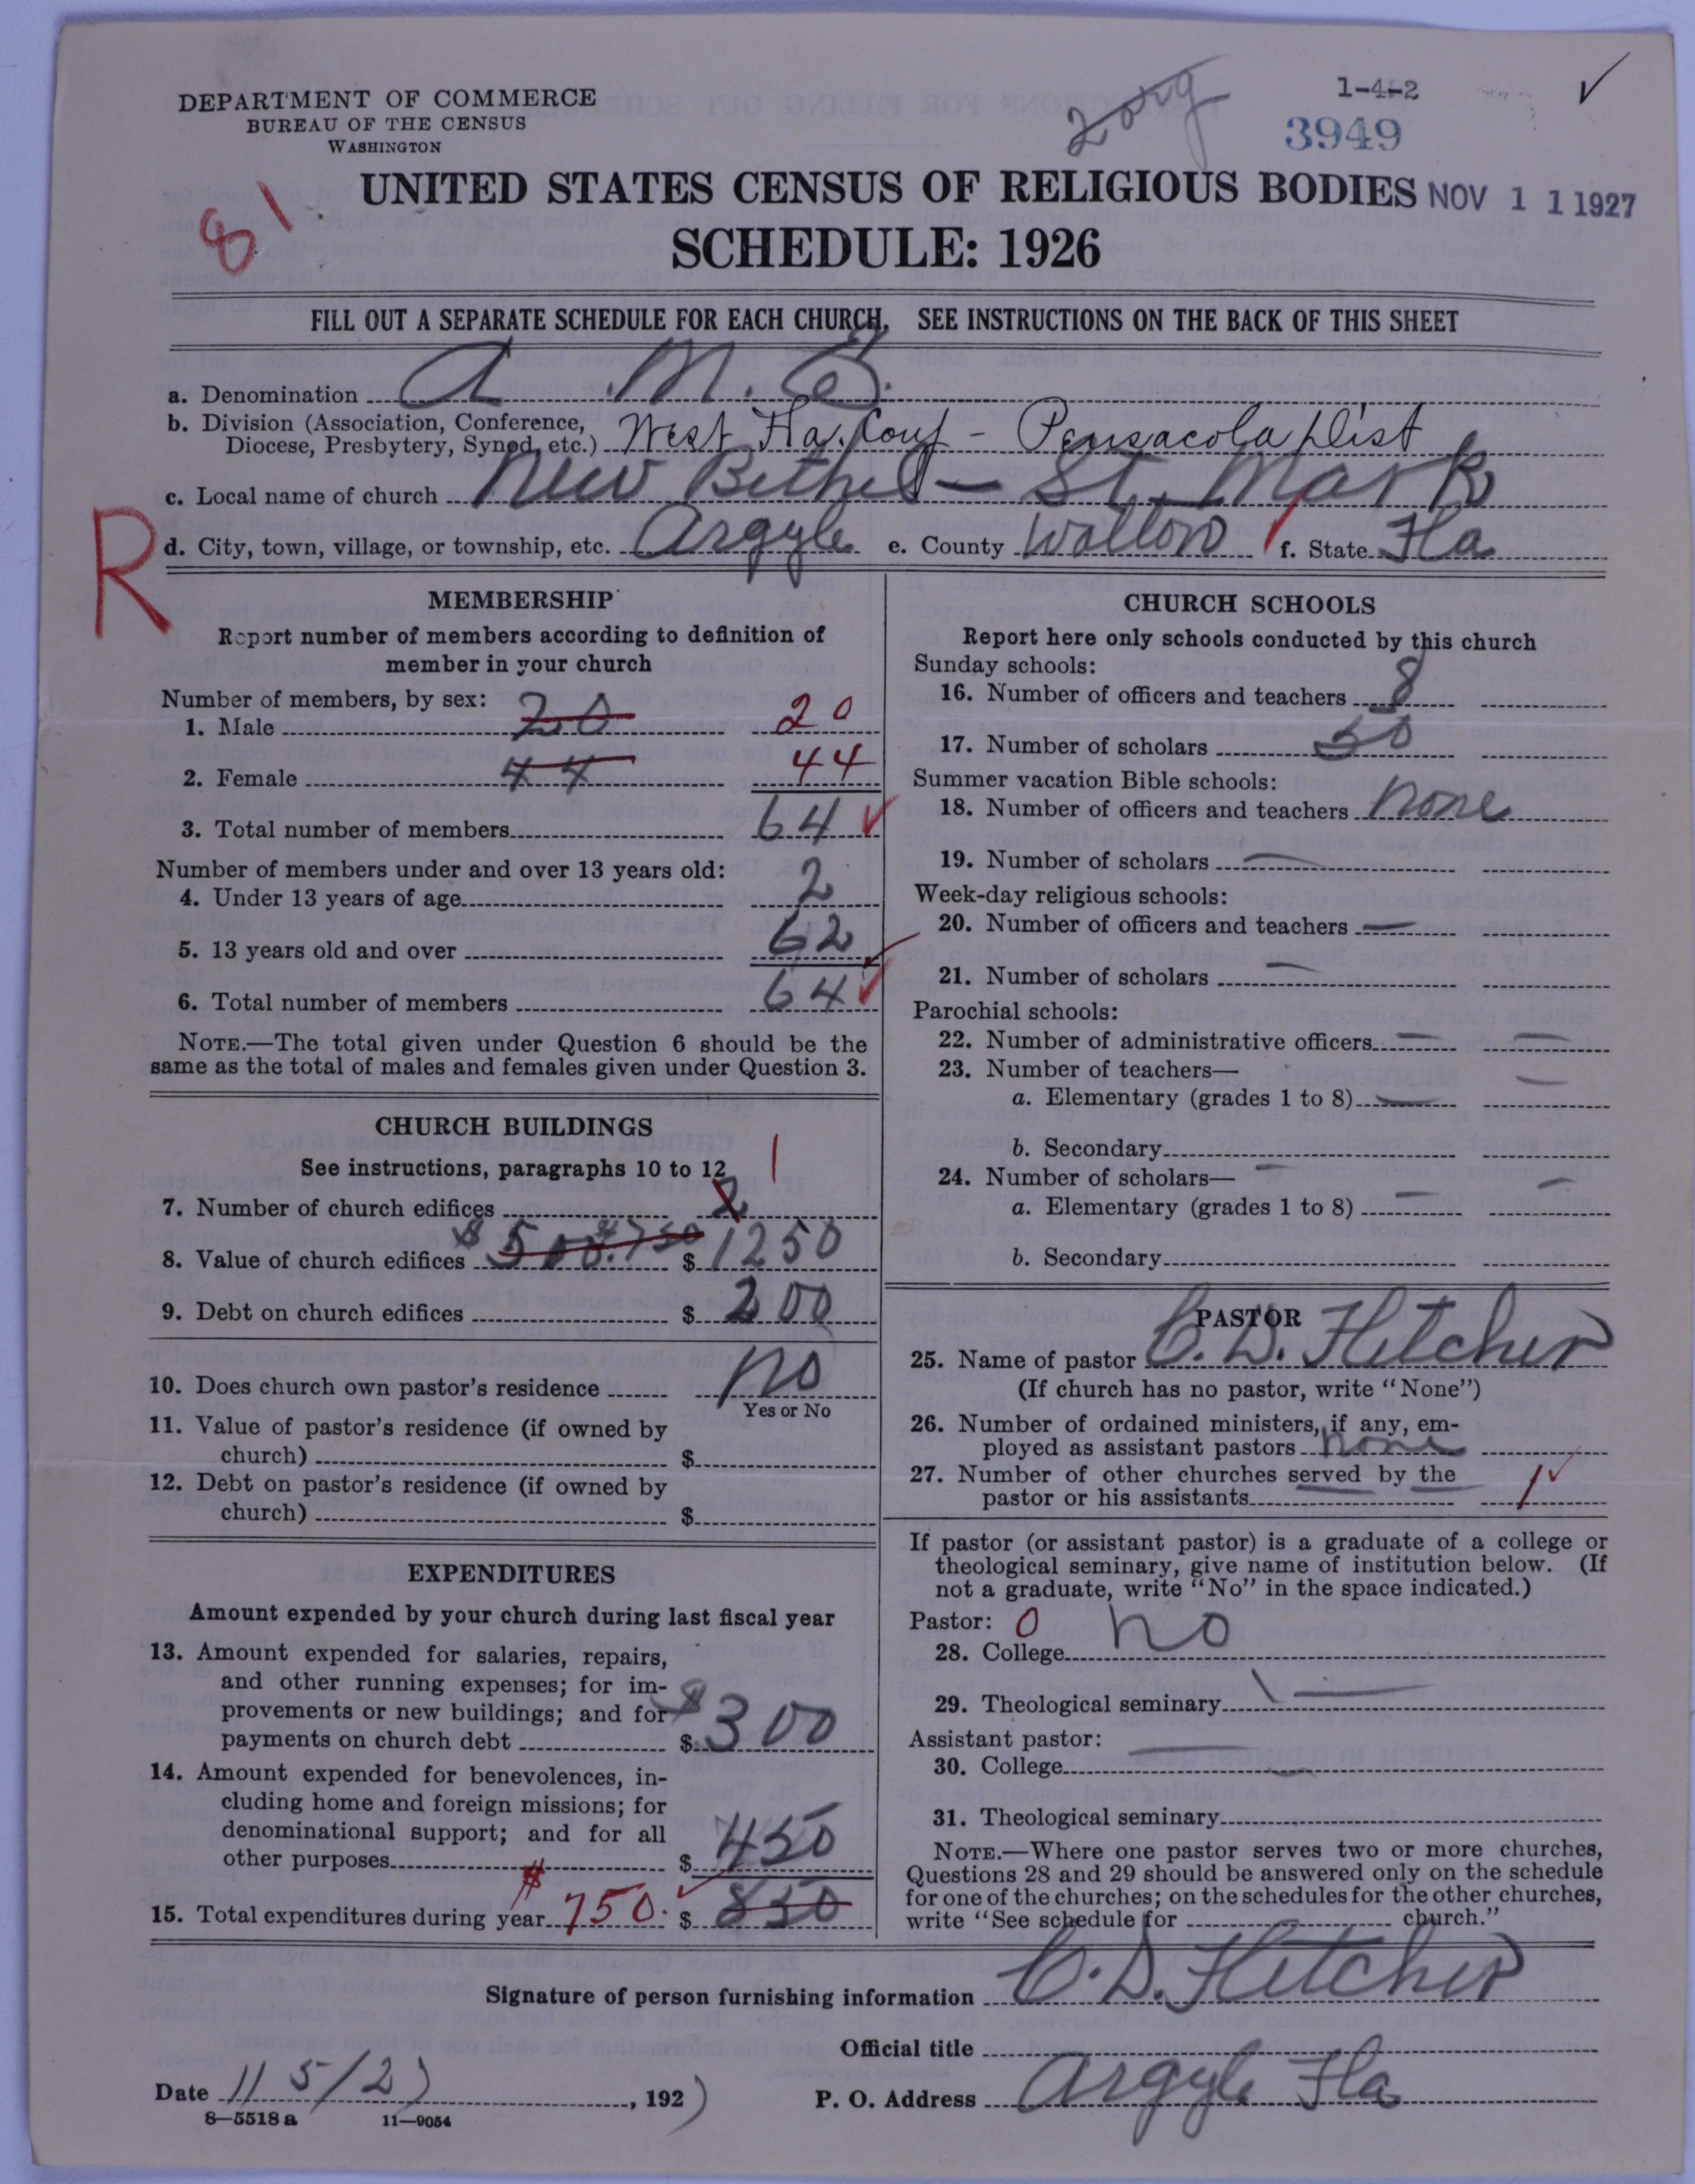 DEPARTMENT OF COMMERCE
BUREAU OF THE CENSUS
WASHINGTON
2 org
1-4-2
3949
81
UNITED STATES CENSUS OF RELIGIOUS BODIES NOV 11 1927
SCHEDULE: 1926
FILL OUT A SEPARATE SCHEDULE FOR EACH CHURCH. SEE INSTRUCTIONS ON THE BACK OF THIS SHEET
a. Denomination A. M. E.
b. Division (Association, Conference,
Diocese, Presbytery, Synod, etc.) West Fla. Conf - Pensacola Dist
c. Local name of church New Bethel - St. Mark
R
d. City, town, village, or township, etc. Argyle e. County Walton f. State Fla
MEMBERSHIP
Report number of members according to definition of
member in your church
Number of members, by sex:
1. Male 20 20
2. Female 44 44
3. Total number of members 64
Number of members under and over 13 years old:
4. Under 13 years of age 2
5. 13 years old and over 62
6. Total number of members 64
NOTE.—The total given under Question 6 should be the
same as the total of males and females given under Question 3.
CHURCH BUILDINGS
See instructions, paragraphs 10 to 12
7. Number of church edifices 2 1
8. Value of church edifices $ 500. 750 $ 1250
9. Debt on church edifices $ 200
10. Does church own pastor's residence No
Yes or No
11. Value of pastor's residence (if owned by
church) $
12. Debt on pastor's residence (if owned by
church) $
EXPENDITURES
Amount expended by your church during last fiscal year
13. Amount expended for salaries, repairs,
and other running expenses; for im-
provements or new buildings; and for
payments on church debt $ $ 300
14. Amount expended for benevolences, in-
cluding home and foreign missions; for
denominational support; and for all
other purposes $ 450
15. Total expenditures during year $ 750. $ 850
CHURCH SCHOOLS
Report here only schools conducted by this church
Sunday schools:
16. Number of officers and teachers 8
17. Number of scholars 50
Summer vacation Bible schools:
18. Number of officers and teachers None
19. Number of scholars —
Week-day religious schools:
20. Number of officers and teachers —
21. Number of scholars —
Parochial schools:
22. Number of administrative officers — —
23. Number of teachers—
a. Elementary (grades 1 to 8) — —
b. Secondary
24. Number of scholars—
a. Elementary (grades 1 to 8) — —
b. Secondary
PASTOR
25. Name of pastor C. D. Fletcher
(If church has no pastor, write "None")
26. Number of ordained ministers, if any, em-
ployed as assistant pastors none
27. Number of other churches served by the
pastor or his assistants 1
If pastor (or assistant pastor) is a graduate of a college or
theological seminary, give name of institution below. (If
not a graduate, write "No" in the space indicated.)
Pastor: 0
28. College No
29. Theological seminary —
Assistant pastor: —
30. College —
31. Theological seminary
NOTE.—Where one pastor serves two or more churches,
Questions 28 and 29 should be answered only on the schedule
for one of the churches; on the schedules for the other churches,
write "See schedule for church."
Signature of person furnishing information C. D. Fletcher
Official title
Date 11 5/27, 1927 P. O. Address Argyle Fla
8—5518 a 11—9054